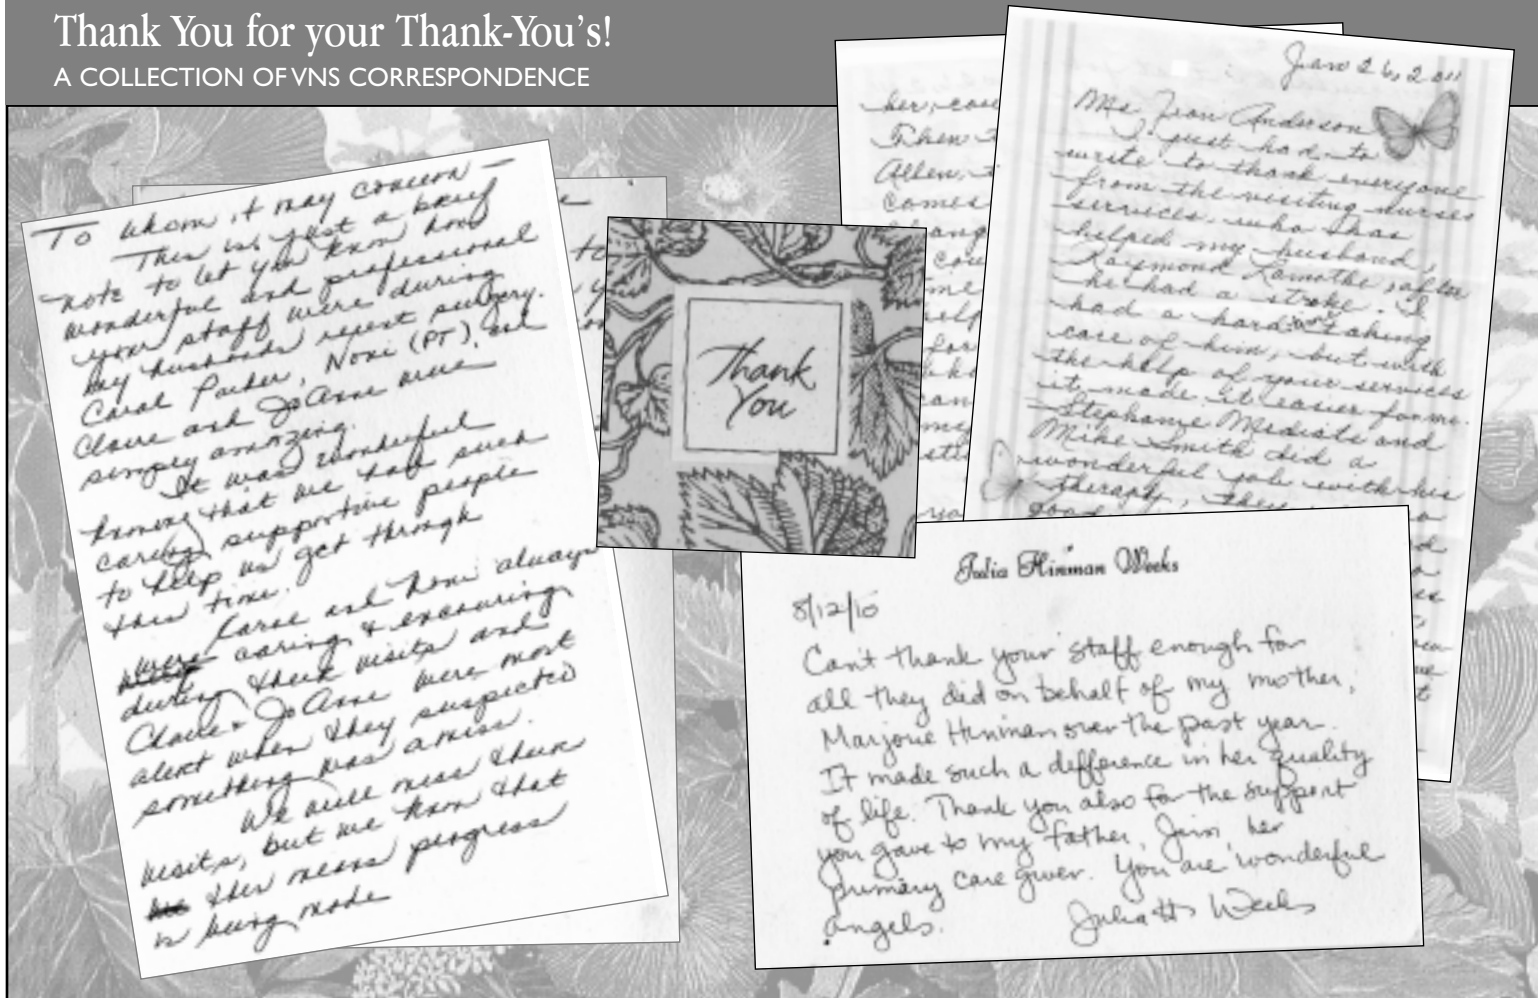 Thank You for your Thank-You's!
A COLLECTION OF VNS CORRESPONDENCE
To whom it may concern —
This is just a brief
note to let you know how
wonderful and professional
your staff were during
my husbands recent surgery.
Carol Parker, Noni (PT), and
Claire and JoAnne were
simply amazing.
It was wonderful
knowing that we have such
caring supportive people
to help us get through
this time.
Carol and Noni always
were caring & encouraging
during their visits and
Claire & JoAnne were most
alert when they suspected
something was amiss.
We will miss their
visits, but we know that
this means progress
is being made
Thank
You
her, case
Then
Allen,
comes
Jan 26, 2011
Ms Jean Anderson
I just had to
write to thank everyone
from the visiting nurses
services who has
helped my husband,
Raymond Lamothe, after
he had a stroke. I
had a hard time taking
care of him, but with
the help of your services
it made it easier for me.
Stephanie and
Mike Smith did a
wonderful job with his
therapy, they
good
Julia Hinman Weeks
8/12/10
Can't thank your staff enough for
all they did on behalf of my mother,
Marjorie Hinman over the past year.
It made such a difference in her quality
of life. Thank you also for the support
you gave to my father, Jim, her
primary care giver. You are wonderful
angels.
Julia H Weeks